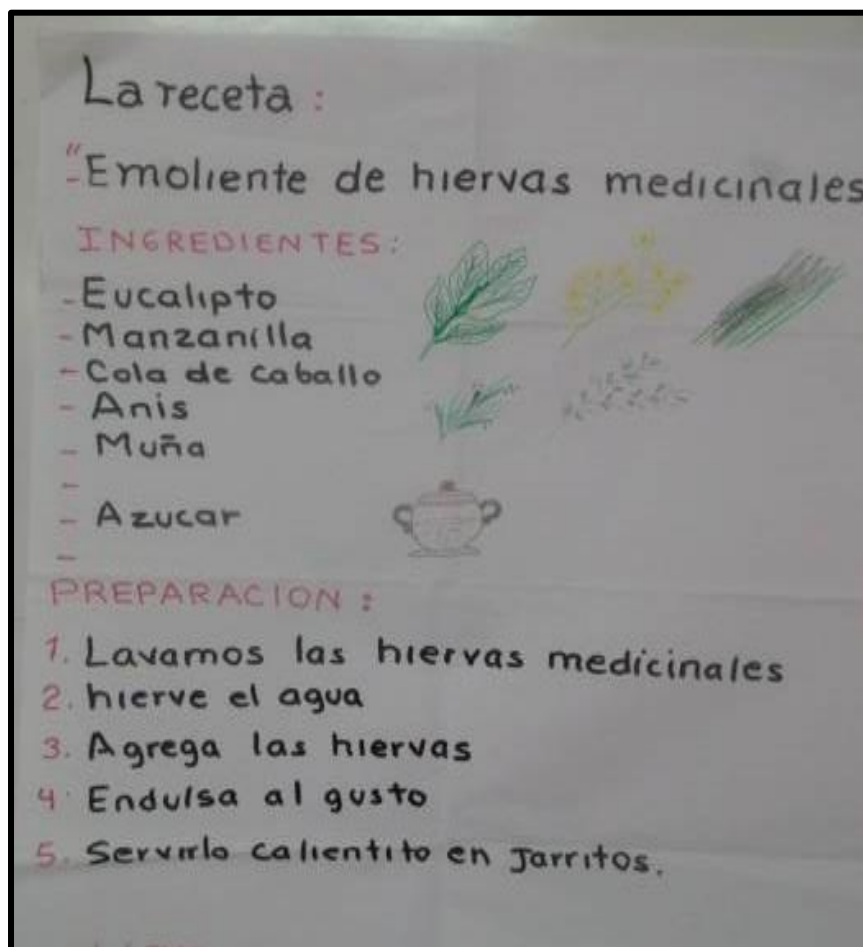 La receta :
"Emoliente de hiervas medicinales
INGREDIENTES:
- Eucalipto
- Manzanilla
- Cola de caballo
- Anis
- Muña
-
- Azucar
-
PREPARACION :
1. Lavamos las hiervas medicinales
2. hierve el agua
3. Agrega las hiervas
4. Endulsa al gusto
5. Servirlo calientito en Jarritos.